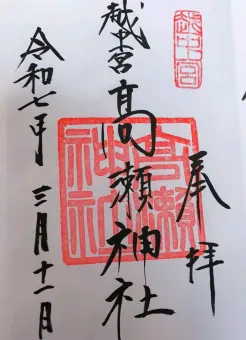 越中一宮
奉拝
越中一宮 高瀬神社
高瀬神社
令和七年 三月十一日